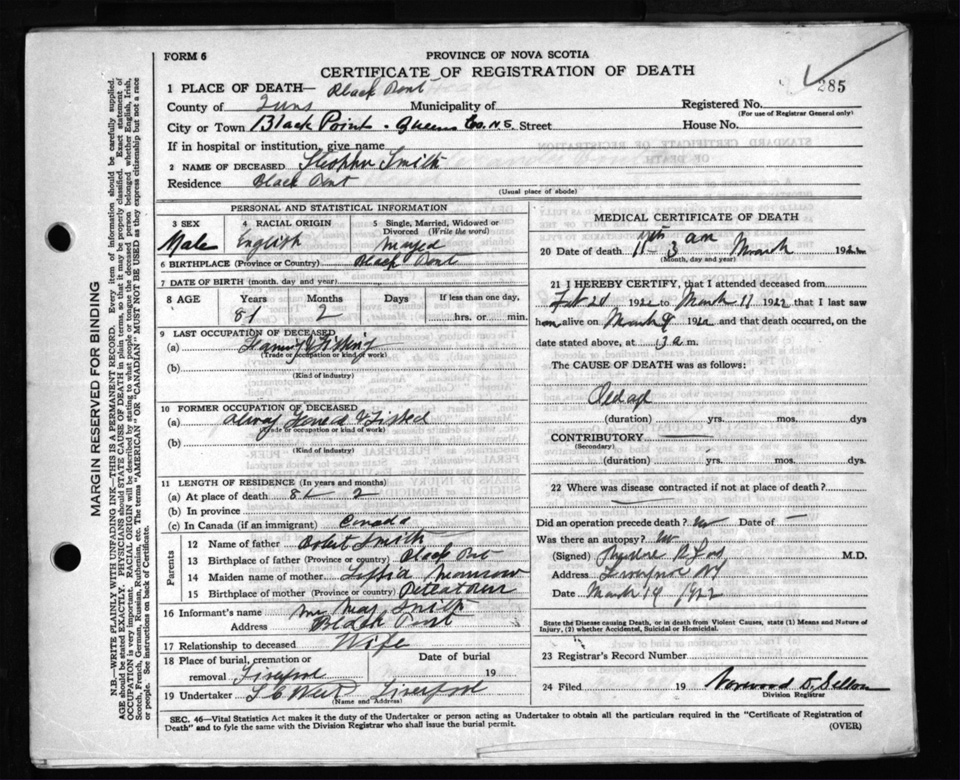 FORM 6
PROVINCE OF NOVA SCOTIA
CERTIFICATE OF REGISTRATION OF DEATH
285
1 PLACE OF DEATH— Black Pont
County of Quns Municipality of
Registered No.
(For use of Registrar General only)
City or Town Black Point - Queens Co. N.S. Street
House No.
If in hospital or institution, give name
2 NAME OF DECEASED Stephen Smith
Residence Black Pont
(Usual place of abode)
PERSONAL AND STATISTICAL INFORMATION
3 SEX
Male
4 RACIAL ORIGIN
English
5 Single, Married, Widowed or Divorced (Write the word)
Mayed
6 BIRTHPLACE (Province or Country) Black Pont
7 DATE OF BIRTH (month, day and year)
8 AGE
Years
81
Months
2
Days
If less than one day,
hrs. or min.
9 LAST OCCUPATION OF DECEASED
(a) & Fishing
(Trade or occupation or kind of work)
(b)
(Kind of industry)
10 FORMER OCCUPATION OF DECEASED
(a) & Fished
(Trade or occupation or kind of work)
(b)
(Kind of industry)
11 LENGTH OF RESIDENCE (In years and months)
(a) At place of death 81 2
(b) In province
(c) In Canada (if an immigrant) Canada
Parents
12 Name of father Smith
13 Birthplace of father (Province or country) Black Pont
14 Maiden name of mother
15 Birthplace of mother (Province or country)
16 Informant's name Smith
Address Black Pont
17 Relationship to deceased Wife
18 Place of burial, cremation or removal Liverpool
Date of burial
19
19 Undertaker Liverpool
(Name and Address)
MEDICAL CERTIFICATE OF DEATH
20 Date of death 11th 3 am March 1922
(Month, day and year)
21 I HEREBY CERTIFY, that I attended deceased from
1922 to March 11 1922 that I last saw
him alive on March 9 1922 and that death occurred, on the
date stated above, at 3 a m.
The CAUSE OF DEATH was as follows:
Old age
(duration) yrs. mos. days
CONTRIBUTORY
(Secondary)
(duration) yrs. mos. dys
22 Where was disease contracted if not at place of death?
Did an operation precede death? Date of —
Was there an autopsy?
(Signed) M.D.
Address Liverpool NS
Date March 14 1922
State the Disease causing Death, or in death from Violent Causes, state (1) Means and Nature of
Injury, (2) whether Accidental, Suicidal or Homicidal.
23 Registrar's Record Number
24 Filed 19
Division Registrar
SEC. 46—Vital Statistics Act makes it the duty of the Undertaker or person acting as Undertaker to obtain all the particulars required in the "Certificate of Registration of
Death" and to fyle the same with the Division Registrar who shall issue the burial permit.
(OVER)
MARGIN RESERVED FOR BINDING
N.B.—WRITE PLAINLY WITH UNFADING INK—THIS IS A PERMANENT RECORD. Every item of information should be carefully supplied.
AGE should be stated EXACTLY. PHYSICIANS should STATE CAUSE OF DEATH in plain terms, so that it may be properly classified. Exact statement of
OCCUPATION is very important. RACIAL ORIGIN will be described by stating to what people or tongue the deceased person belonged whether English, Irish,
Scotch, French, German, Russian, Ruthenian, etc. The terms "AMERICAN" OR "CANADIAN" MUST NOT BE USED as they express citizenship but not a race
or people. See instructions on back of Certificate.